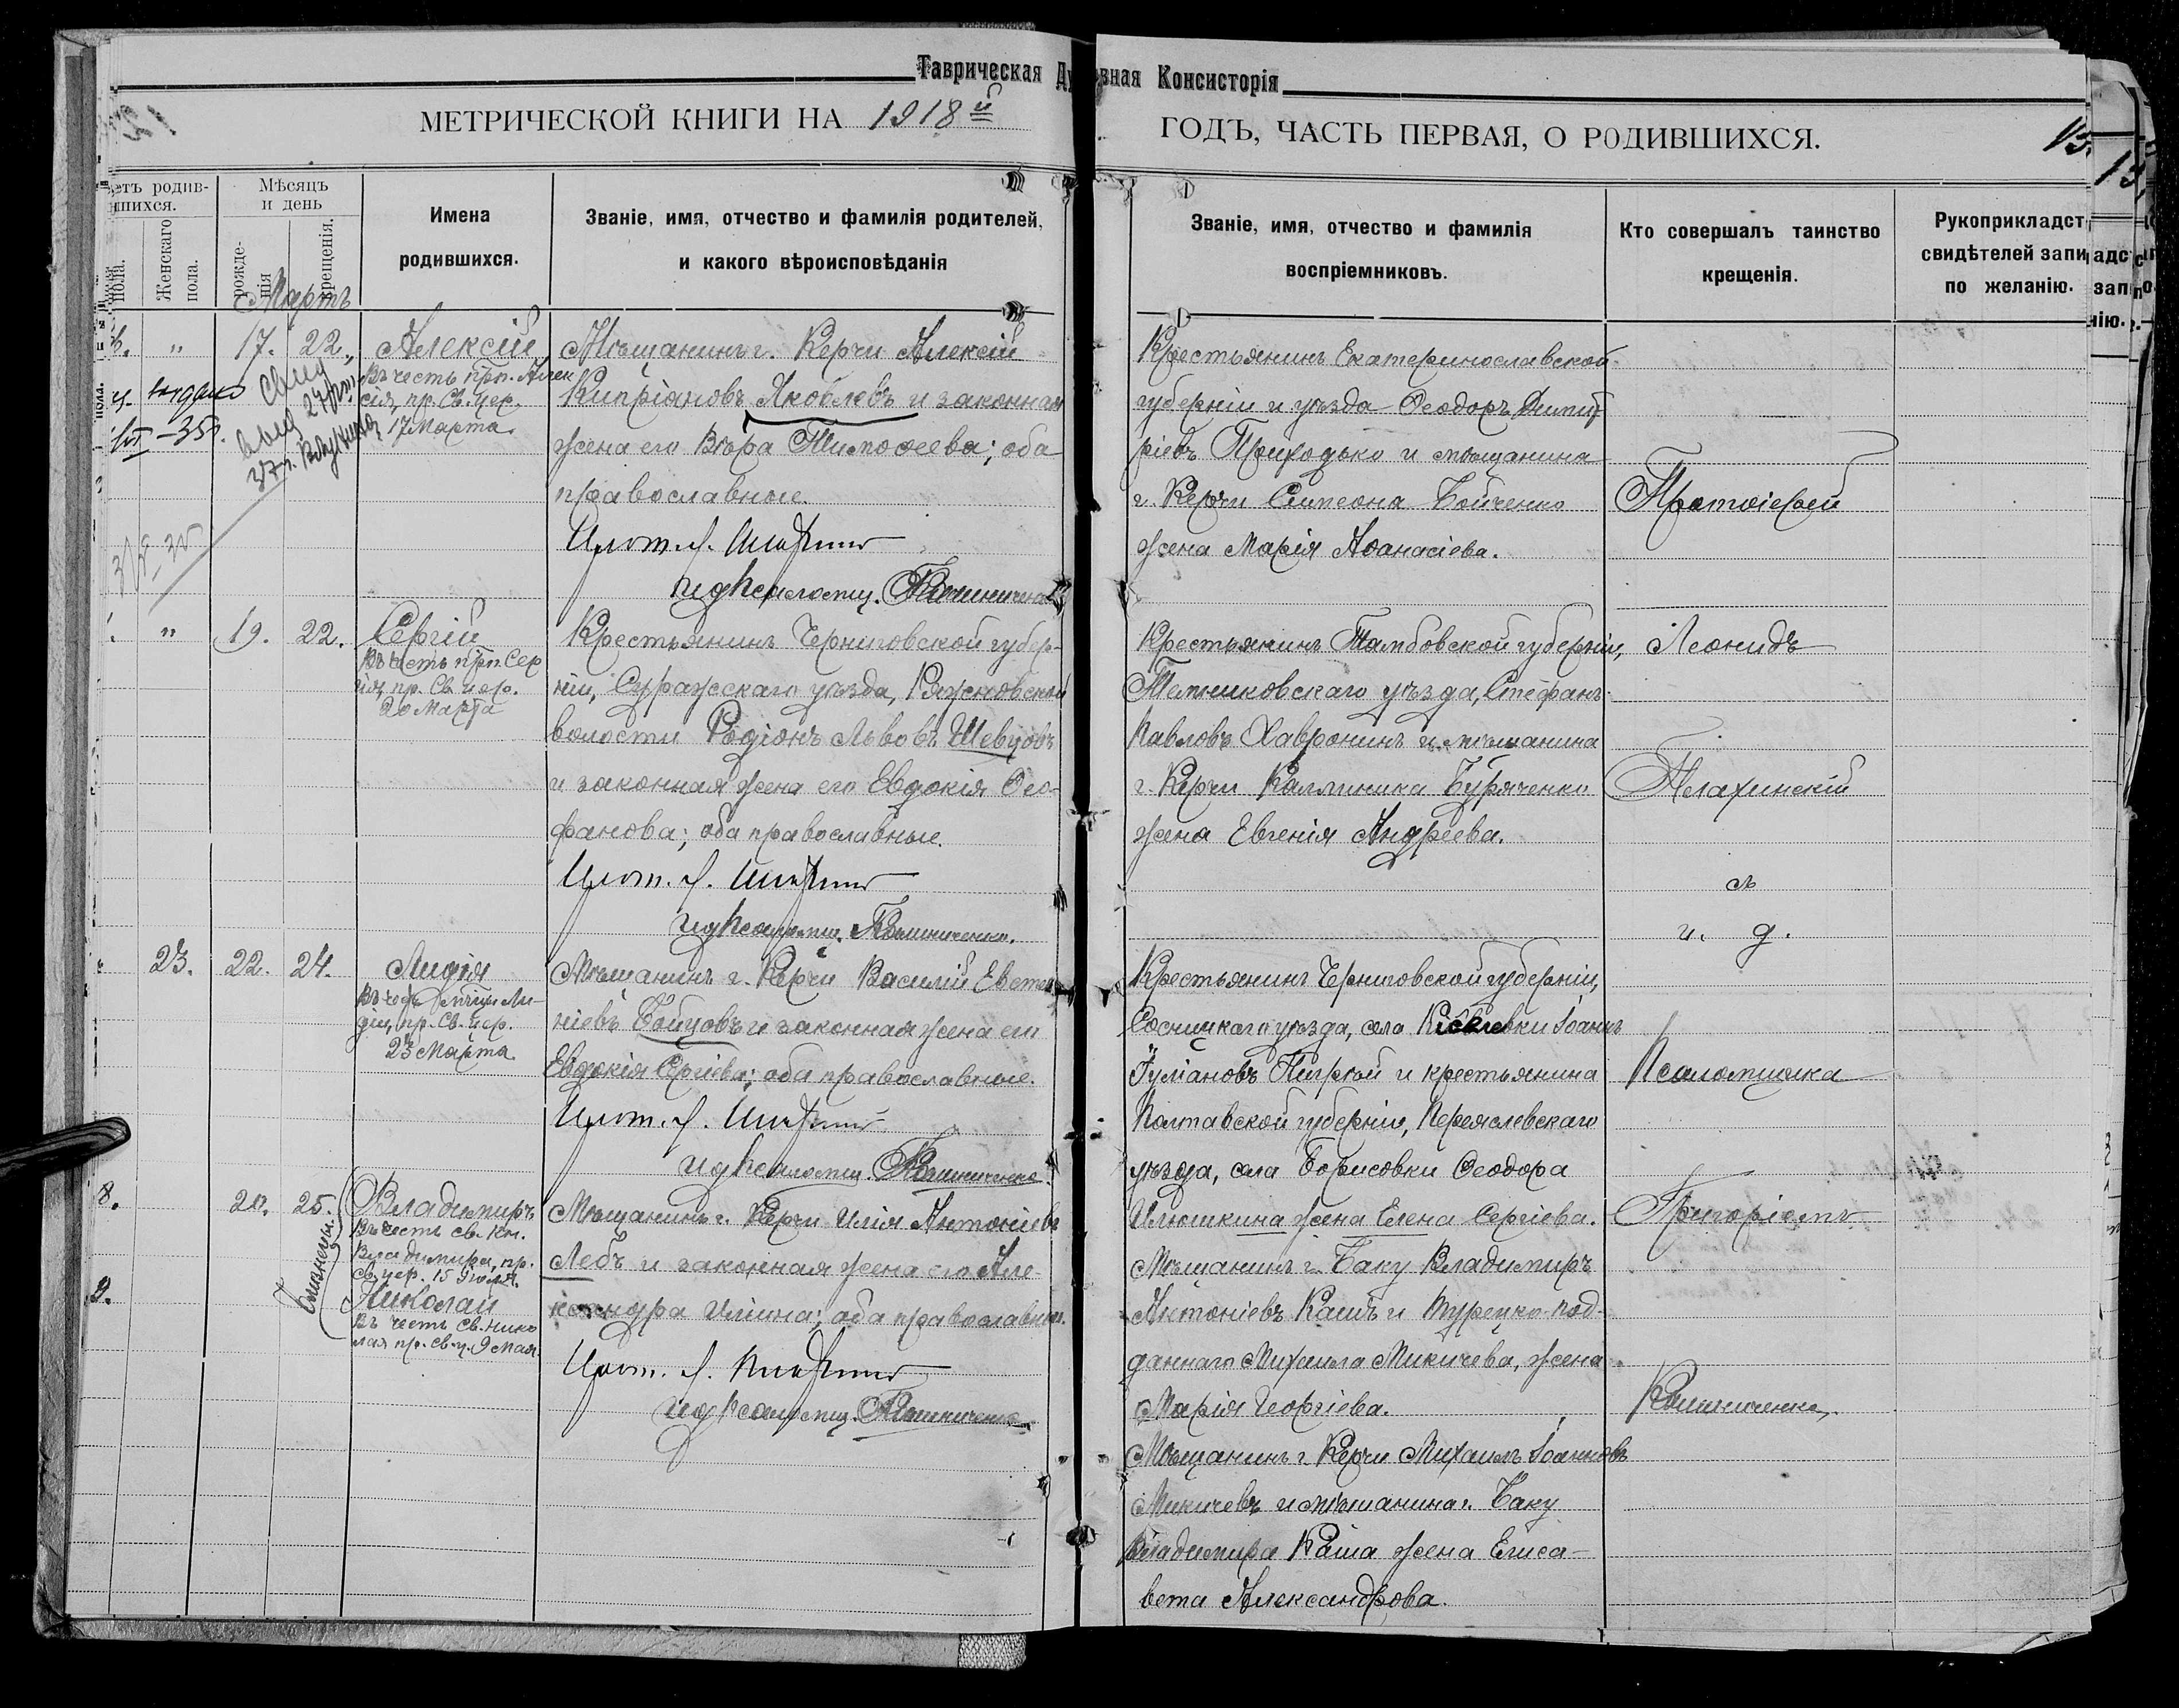 Таврическая Ду
вная Консисторія
МЕТРИЧЕСКОЙ КНИГИ НА 1918й
ГОДЪ, ЧАСТЬ ПЕРВАЯ, О РОДИВШИХСЯ.
13.
етъ родив-
шихся.
Женскаго
пола.
Мѣсяцъ
и день
рожде-
нія
крещенія.
Имена
родившихся.
Званіе, имя, отчество и фамилія родителей,
и какого вѣроисповѣданія
Званіе, имя, отчество и фамилія
воспріемниковъ.
Кто совершалъ таинство
крещенія.
Рукоприкладст
свидѣтелей запи
по желанію.
Мартъ
17. 22. Алексій
Въ честь прп. Алек
сія, пр. Св. цер.
17 Марта.
Мѣщанинъ г. Керчи Алексій
Кипріановъ Яковлевъ и законная
жена его Вѣра Тимофеева; оба
православные.
Прот. Л.
Крестьянинъ Екатеринославской
губерніи и уѣзда Ѳеодоръ Димит
ріевъ Приходько и мѣщанина
г. Керчи Симеона Бойченко
жена Марія Аѳанасіева.
19. 22. Сергій
Въ честь прп. Сер
гія, пр. Св. цер.
20 Марта
Крестьянинъ Черниговской губер-
ніи, Суражскаго уѣзда, Кляжновской
волости Родіонъ Львовъ Шевцовъ
и законная жена его Евдокія Ѳео-
фанова; оба православные.
Прот. Л.
Крестьянинъ Тамбовской губерніи,
Темниковскаго уѣзда, Стефанъ
Павловъ Хавронинъ и мѣщанина
г. Керчи Каллиника Буряченко
жена Евгенія Андреева.
23. 22. 24. Лидія
Въ честь мчцы Ли-
діи, пр. Св. цер.
23 Марта.
Мѣщанинъ г. Керчи Василій Евста
ніевъ Бойцовъ и законная жена его
Евдокія Сергіева; оба православные.
Прот. Л.
Крестьянинъ Черниговской губерніи,
Сосницкаго уѣзда, села Іоаннъ
и крестьянина
Полтавской губерніи, Переяслевскаго
уѣзда, села Борисовки Ѳеодора
Илюшкина жена Елена Сергіева.
8. 20. 25. Владимиръ
Въ честь св. кн.
Владимира, пр.
Св. цер. 15 Іюля.
9. Николай
Въ честь св. Нико
лая пр. св. ц. 9 Мая.
близнецы.
Мѣщанинъ г. Керчи Илія Антоніевъ
Лебъ и законная жена его Але-
ксандра Ильина; оба православные.
Прот. Л.
Мѣщанинъ г. Баку Владимиръ
Антоніевъ Кашъ и Турецко-под-
даннаго Михаила Микичева, жена
Марія Георгіева.
Мѣщанинъ г. Керчи Михаилъ Іоанновъ
Микичевъ и мѣщанина г. Баку
Владимира Каша жена Елиса-
вета Александрова.
Протоіерей
Леонидъ
съ
и. д.
Псаломщика
Григоріемъ
Калиниченко.